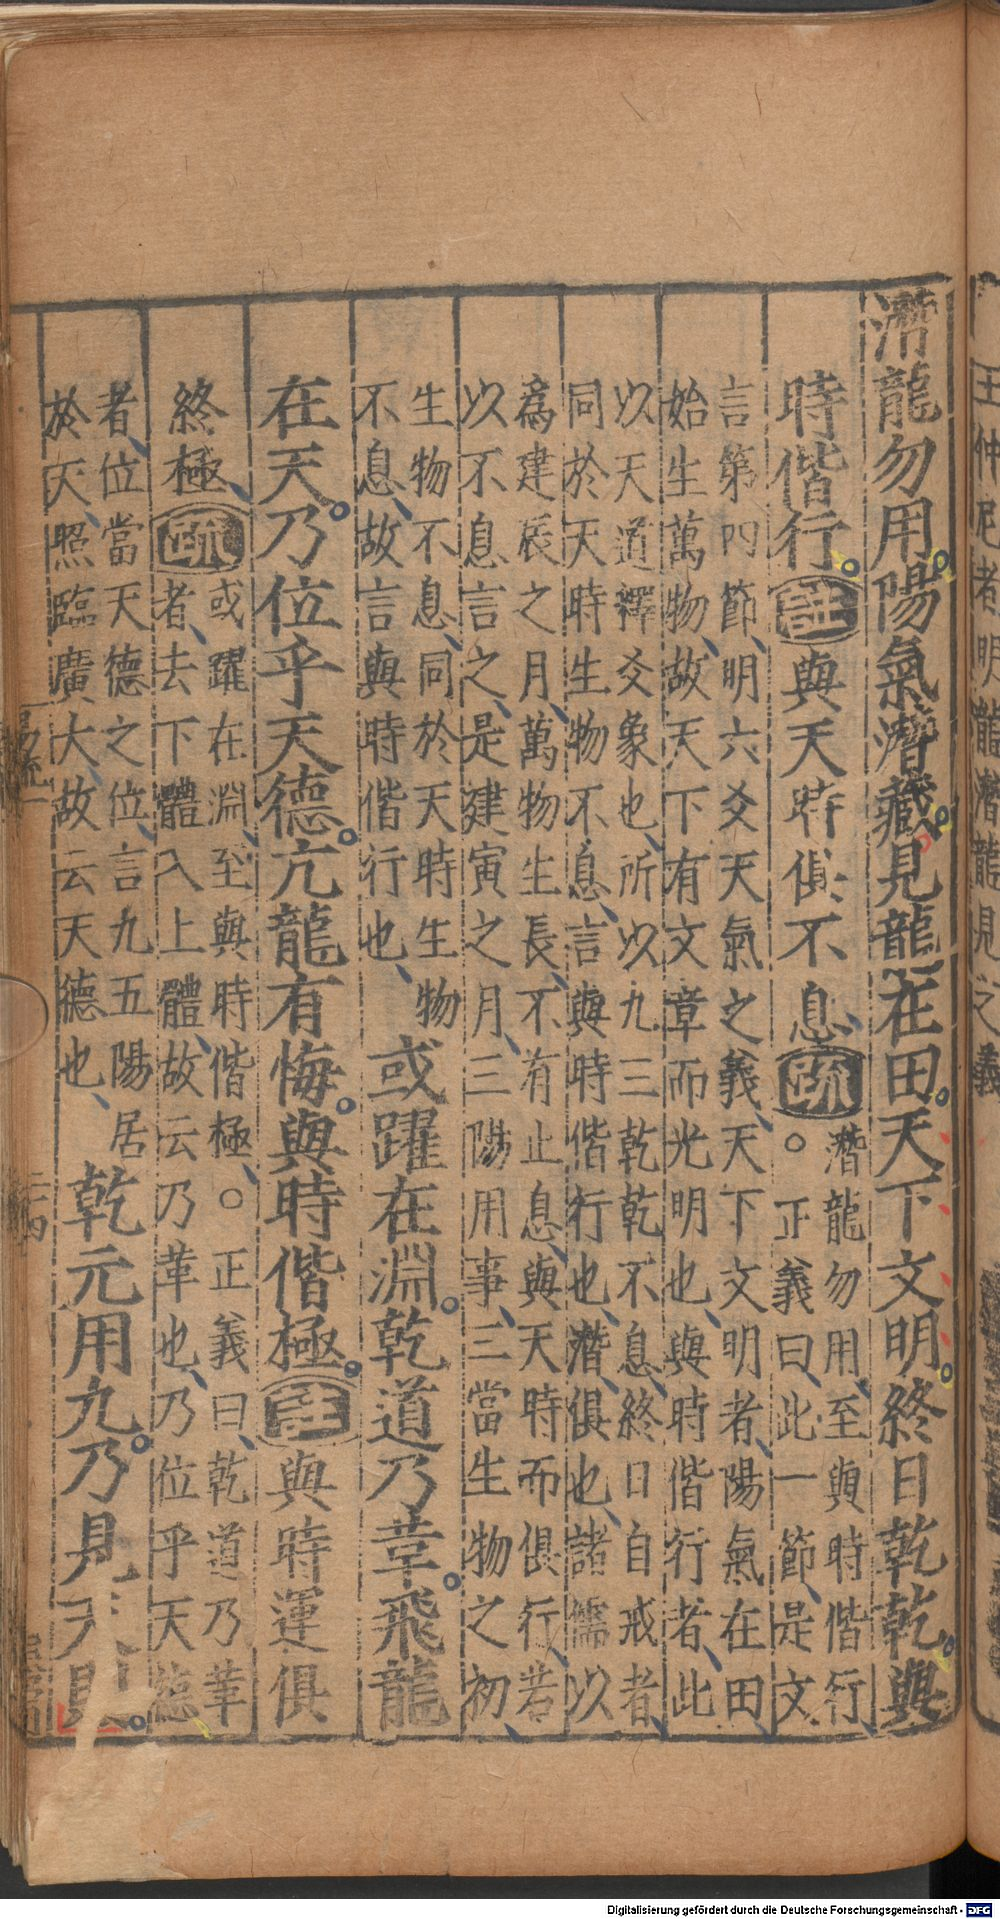 王仲尼者明龍潛龍見之義
潛龍勿用陽氣潛藏見龍在田天下文明終日乾乾與
時偕行註與天時俱不息疏潛龍勿用至與時偕行
○正義曰此一節是文
言第四節明六爻天氣之義天下文明者陽氣在田
始生萬物故天下有文章而光明也與時偕行者此
以天道釋爻象也所以九三乾乾不息終日自戒者
同於天時生物不息言與時偕行也潛俱也諸儒以
為建辰之月萬物生長不有止息與天時而俱行若
以不息言之是建寅之月三陽用事三當生物之初
生物不息同於天時生物
不息故言與時偕行也
或躍在淵乾道乃革飛龍
在天乃位乎天德亢龍有悔與時偕極註與時運俱
終極疏或躍在淵至與時偕極○正義曰乾道乃革
者去下體入上體故云乃革也乃位乎天德
者位當天德之位言九五陽居
於天照臨廣大故云天德也
乾元用九乃見天則
易疏一
二十四
Digitalisierung gefördert durch die Deutsche Forschungsgemeinschaft - DFG